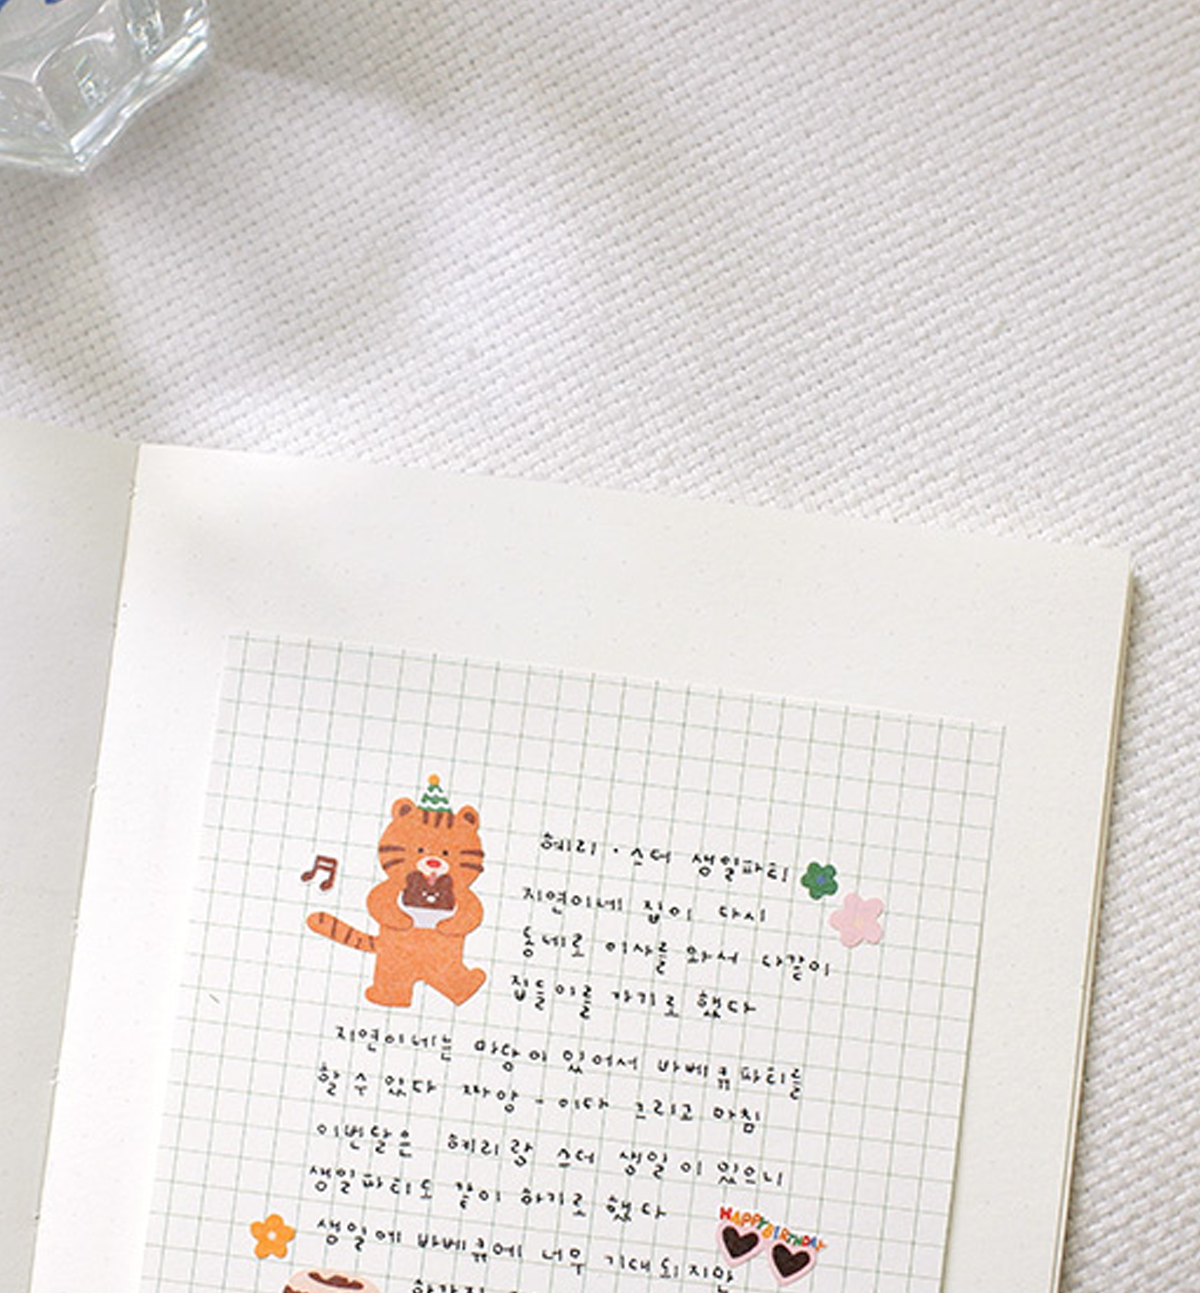 혜리 · 스더 생일파티
지연이네 집이 다시
동네로 이사를 와서 다같이
집들이를 가기로 했다
지연이네는 마당이 있어서 바베큐파티를
할 수 있다 짜앙 - 이다 그리고 마침
이번달은 혜리랑 스더 생일이 있으니
생일파티도 같이 하기로 했다
HAPPY BIRTHDAY
생일에 바베큐에 너무 기대되지만